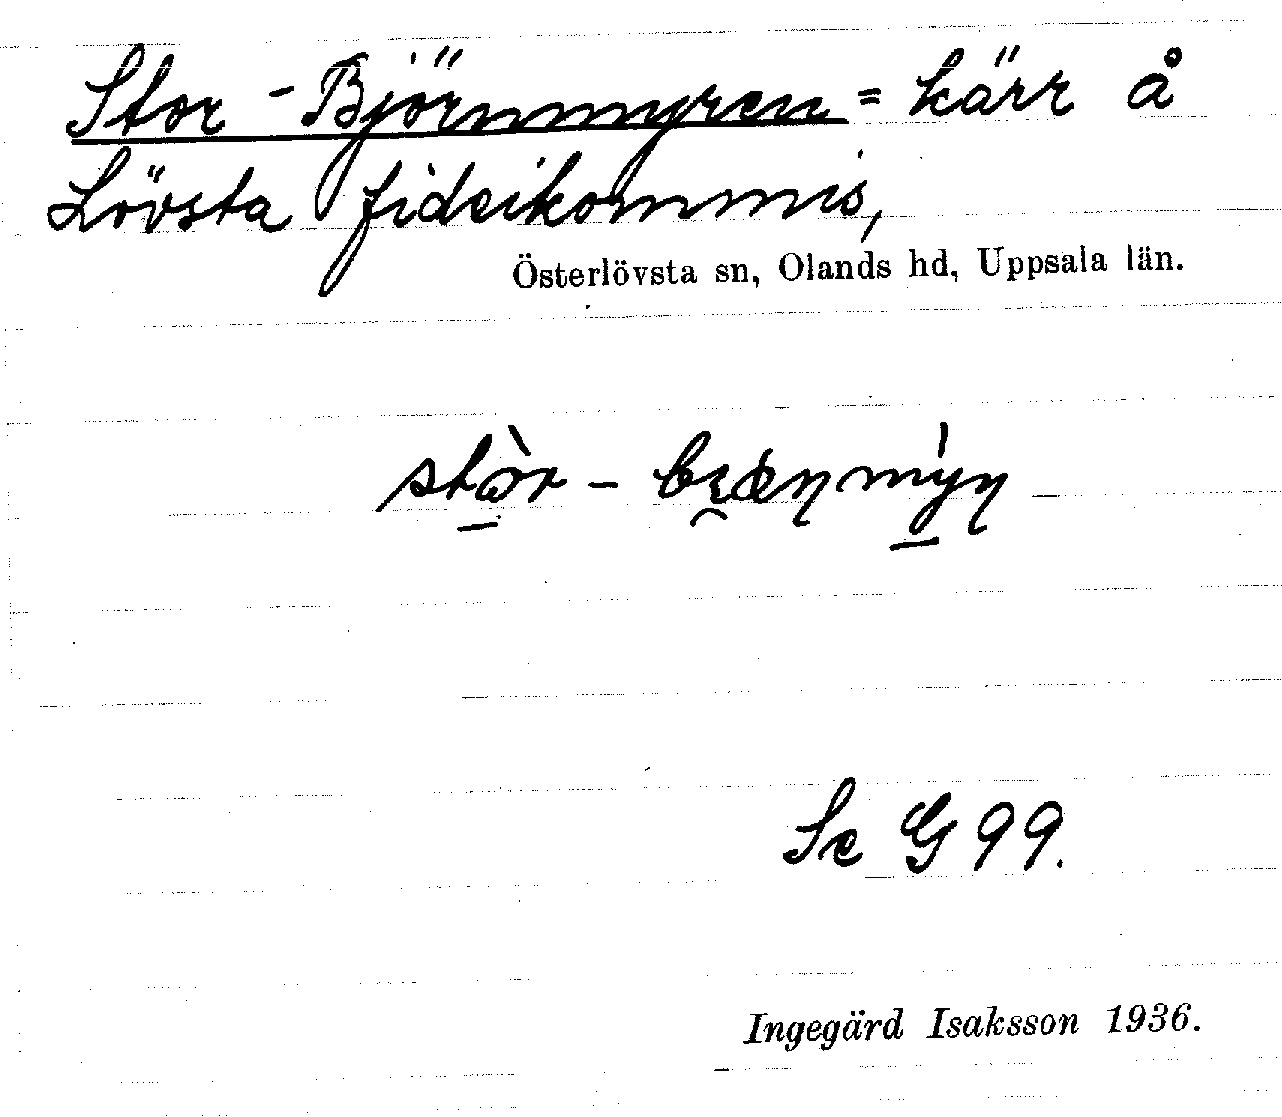 Stor-Björnmyren = kärr å
Lövsta fideikommis,
Österlövsta sn, Olands hd, Uppsala län.
Se G 99.
Ingegärd Isaksson 1936.